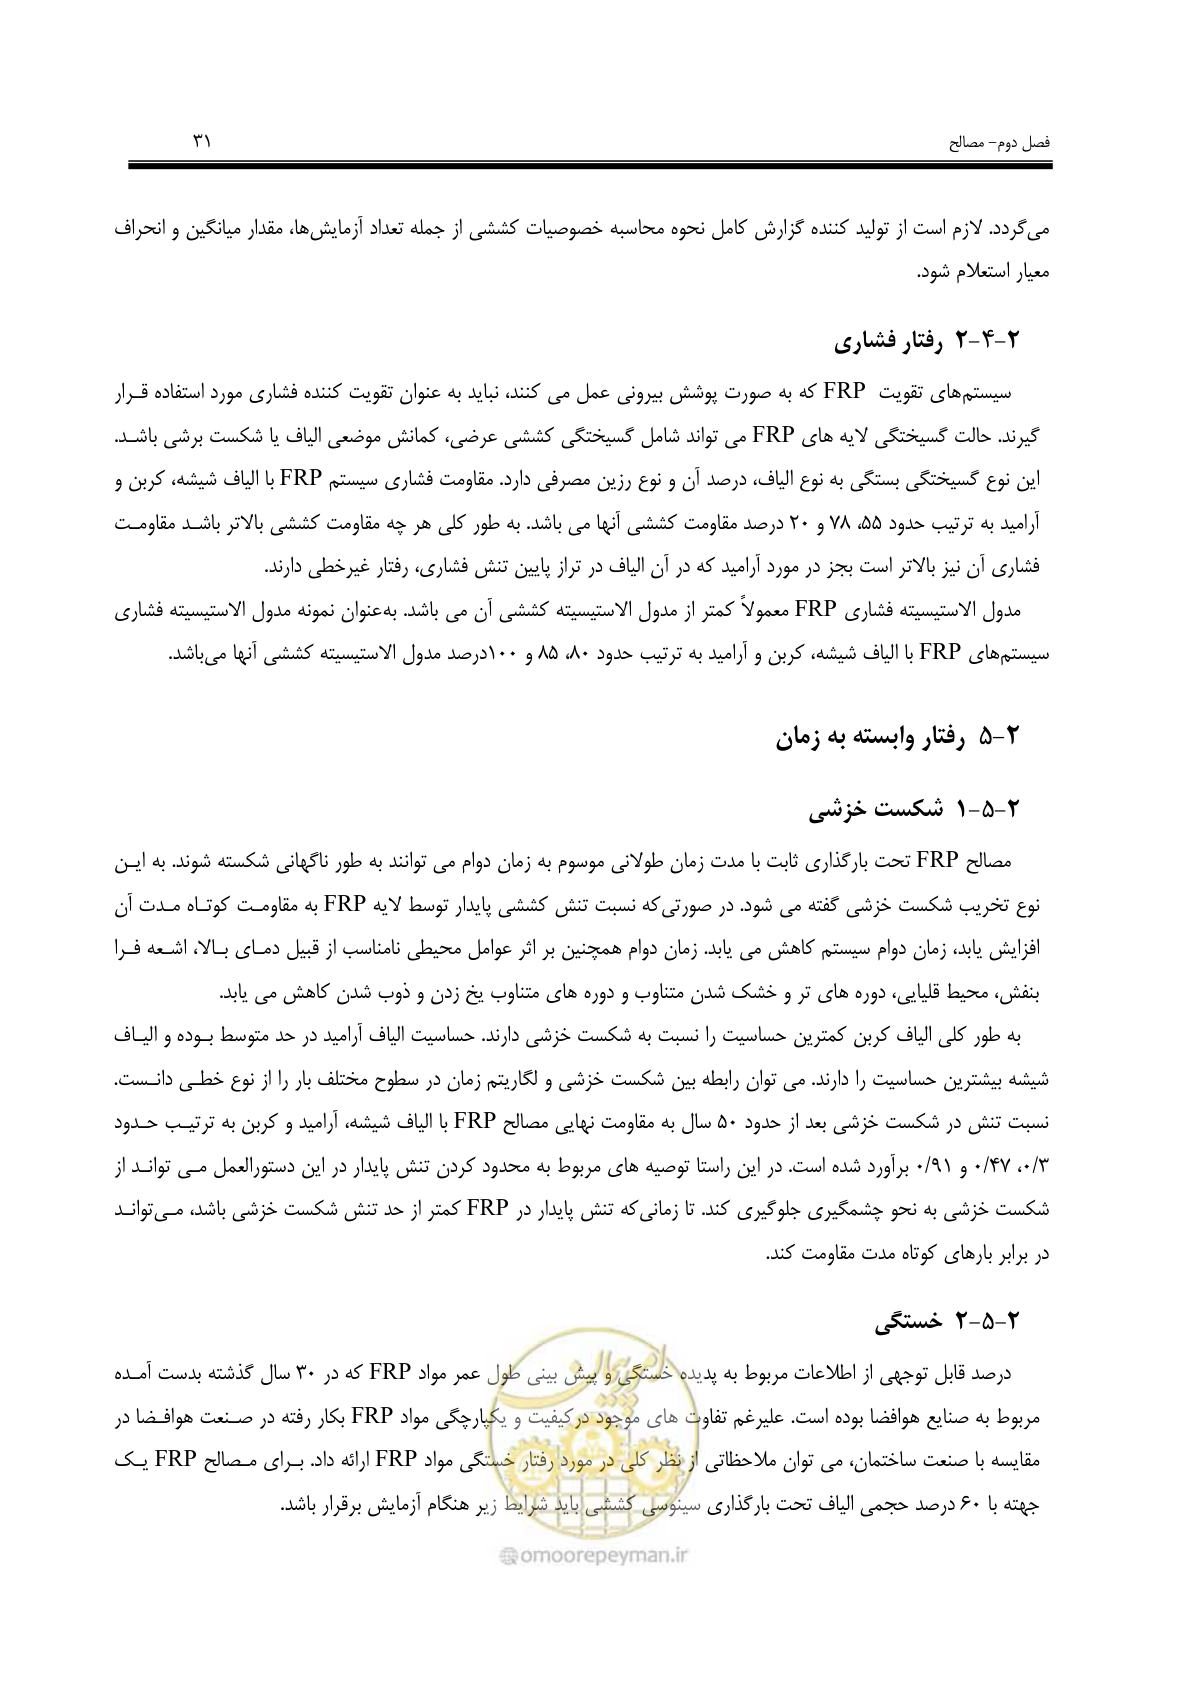 فصل دوم- مصالح ۳۱
می‌گردد. لازم است از تولید کننده گزارش کامل نحوه محاسبه خصوصیات کششی از جمله تعداد آزمایش‌ها، مقدار میانگین و انحراف
معیار استعلام شود.
۲-۴-۲ رفتار فشاری
سیستم‌های تقویت FRP که به صورت پوشش بیرونی عمل می کنند، نباید به عنوان تقویت کننده فشاری مورد استفاده قـرار
گیرند. حالت گسیختگی لایه های FRP می تواند شامل گسیختگی کششی عرضی، کمانش موضعی الیاف یا شکست برشی باشـد.
این نوع گسیختگی بستگی به نوع الیاف، درصد آن و نوع رزین مصرفی دارد. مقاومت فشاری سیستم FRP با الیاف شیشه، کربن و
آرامید به ترتیب حدود ۵۵، ۷۸ و ۲۰ درصد مقاومت کششی آنها می باشد. به طور کلی هر چه مقاومت کششی بالاتر باشـد مقاومـت
فشاری آن نیز بالاتر است بجز در مورد آرامید که در آن الیاف در تراز پایین تنش فشاری، رفتار غیرخطی دارند.
مدول الاستیسیته فشاری FRP معمولاً کمتر از مدول الاستیسیته کششی آن می باشد. به‌عنوان نمونه مدول الاستیسیته فشاری
سیستم‌های FRP با الیاف شیشه، کربن و آرامید به ترتیب حدود ۸۰، ۸۵ و ۱۰۰درصد مدول الاستیسیته کششی آنها می‌باشد.
۲-۵ رفتار وابسته به زمان
۲-۵-۱ شکست خزشی
مصالح FRP تحت بارگذاری ثابت با مدت زمان طولانی موسوم به زمان دوام می توانند به طور ناگهانی شکسته شوند. به ایـن
نوع تخریب شکست خزشی گفته می شود. در صورتی‌که نسبت تنش کششی پایدار توسط لایه FRP به مقاومـت کوتـاه مـدت آن
افزایش یابد، زمان دوام سیستم کاهش می یابد. زمان دوام همچنین بر اثر عوامل محیطی نامناسب از قبیل دمـای بـالا، اشـعه فـرا
بنفش، محیط قلیایی، دوره های تر و خشک شدن متناوب و دوره های متناوب یخ زدن و ذوب شدن کاهش می یابد.
به طور کلی الیاف کربن کمترین حساسیت را نسبت به شکست خزشی دارند. حساسیت الیاف آرامید در حد متوسط بـوده و الیـاف
شیشه بیشترین حساسیت را دارند. می توان رابطه بین شکست خزشی و لگاریتم زمان در سطوح مختلف بار را از نوع خطـی دانـست.
نسبت تنش در شکست خزشی بعد از حدود ۵۰ سال به مقاومت نهایی مصالح FRP با الیاف شیشه، آرامید و کربن به ترتیـب حـدود
۰/۳، ۰/۴۷ و ۰/۹۱ برآورد شده است. در این راستا توصیه های مربوط به محدود کردن تنش پایدار در این دستورالعمل مـی توانـد از
شکست خزشی به نحو چشمگیری جلوگیری کند. تا زمانی‌که تنش پایدار در FRP کمتر از حد تنش شکست خزشی باشد، مـی‌توانـد
در برابر بارهای کوتاه مدت مقاومت کند.
۲-۵-۲ خستگی
درصد قابل توجهی از اطلاعات مربوط به پدیده خستگی و پیش بینی طول عمر مواد FRP که در ۳۰ سال گذشته بدست آمـده
مربوط به صنایع هوافضا بوده است. علیرغم تفاوت های موجود درکیفیت و یکپارچگی مواد FRP بکار رفته در صـنعت هوافـضا در
مقایسه با صنعت ساختمان، می توان ملاحظاتی از نظر کلی در مورد رفتار خستگی مواد FRP ارائه داد. بـرای مـصالح FRP یـک
جهته با ۶۰ درصد حجمی الیاف تحت بارگذاری سینوسی کششی باید شرایط زیر هنگام آزمایش برقرار باشد.
امور پیمان
@omoorepeyman.ir